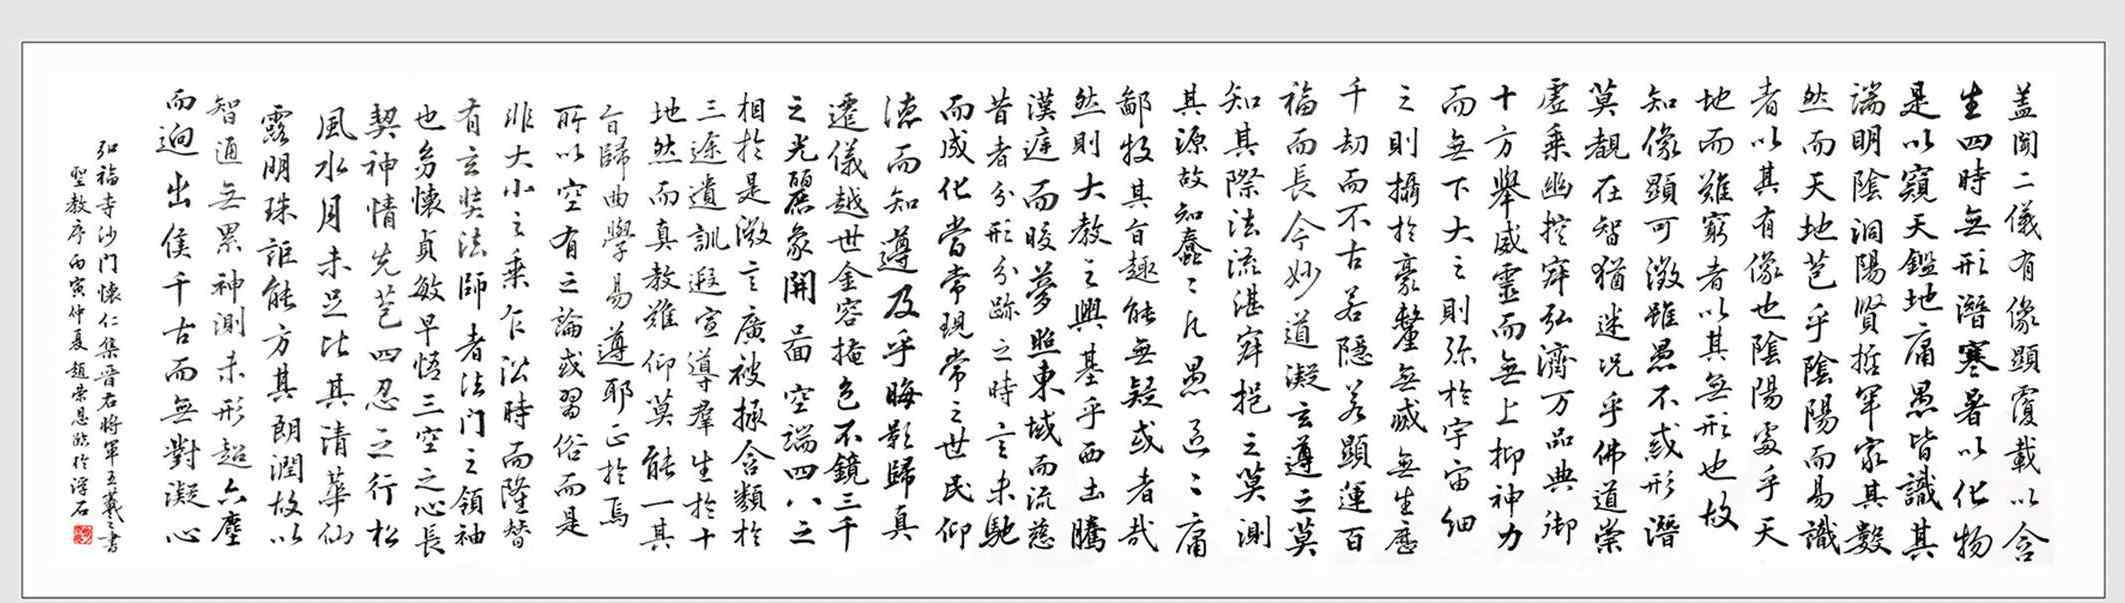 蓋聞二儀有像顯覆載以含
生四時無形潛寒暑以化物
是以窺天鑑地庸愚皆識其
端明陰洞陽賢哲罕窮其數
然而天地苞乎陰陽而易識
者以其有像也陰陽處乎天
地而難窮者以其無形也故
知像顯可徵雖愚不惑形潛
莫覩在智猶迷況乎佛道崇
虛乘幽控寂弘濟万品典御
十方舉威靈而無上抑神力
而無下大之則弥於宇宙細
之則攝於豪釐無滅無生歷
千劫而不古若隱若顯運百
福而長今妙道凝玄遵之莫
知其際法流湛寂挹之莫測
其源故知蠢〻凡愚區〻庸
鄙投其旨趣能無疑或者哉
然則大教之興基乎西土騰
漢庭而晈夢照東域而流慈
昔者分形分跡之時言未馳
而成化當常現常之世民仰
德而知遵及乎晦影歸真
遷儀越世金容掩色不鏡三千
之光麗象開圖空端四八之
相於是微言廣被拯含類於
三途遺訓遐宣導群生於十
地然而真教難仰莫能一其
旨歸曲學易遵耶正於焉
所以空有之論或習俗而是
非大小之乘乍沿時而隆替
有玄奘法師者法門之領袖
也幼懷貞敏早悟三空之心長
契神情先苞四忍之行松
風水月未足比其清華仙
露明珠詎能方其朗潤故以
智通無累神測未形超六塵
而迥出隻千古而無對凝心
弘福寺沙門懷仁集晉右將軍王羲之書
聖教序丙寅仲夏趙榮恩臨於浮石